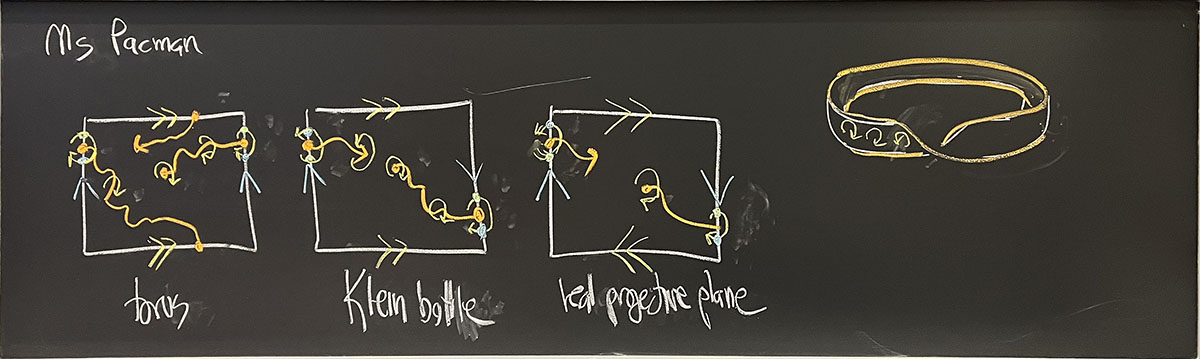 Ms Pacman
torus
Klein bottle
real projective plane